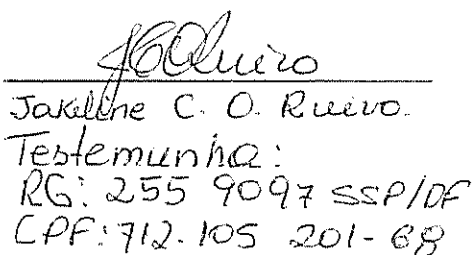 JCORuivo
Jakeline C. O. Ruivo.
Testemunha:
RG: 255 9097 SSP/DF
CPF: 712.105 201-68